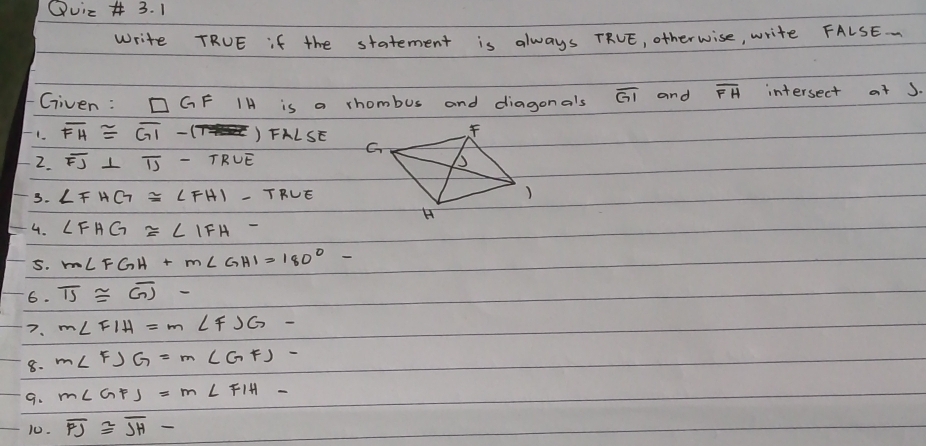 Quiz # 3.1
Write TRUE if the statement is always TRUE, otherwise, write FALSE.
Given: □ GF IH is a rhombus and diagonals G̅I̅ and F̅H̅ intersect at J.
1. F̅H̅ ≅ G̅I̅ - ( ) FALSE
G
F
2. F̅J̅ ⊥ I̅J̅ - TRUE
J
3. ∠FHG ≅ ∠FHI - TRUE
I
H
4. ∠FHG ≅ ∠IFH -
5. m∠FGH + m∠GHI = 180° -
6. I̅J̅ ≅ G̅J̅ -
7. m∠FIH = m∠FJG -
8. m∠FJG = m∠GFJ -
9. m∠GFJ = m∠FIH -
10. F̅J̅ ≅ J̅H̅ -